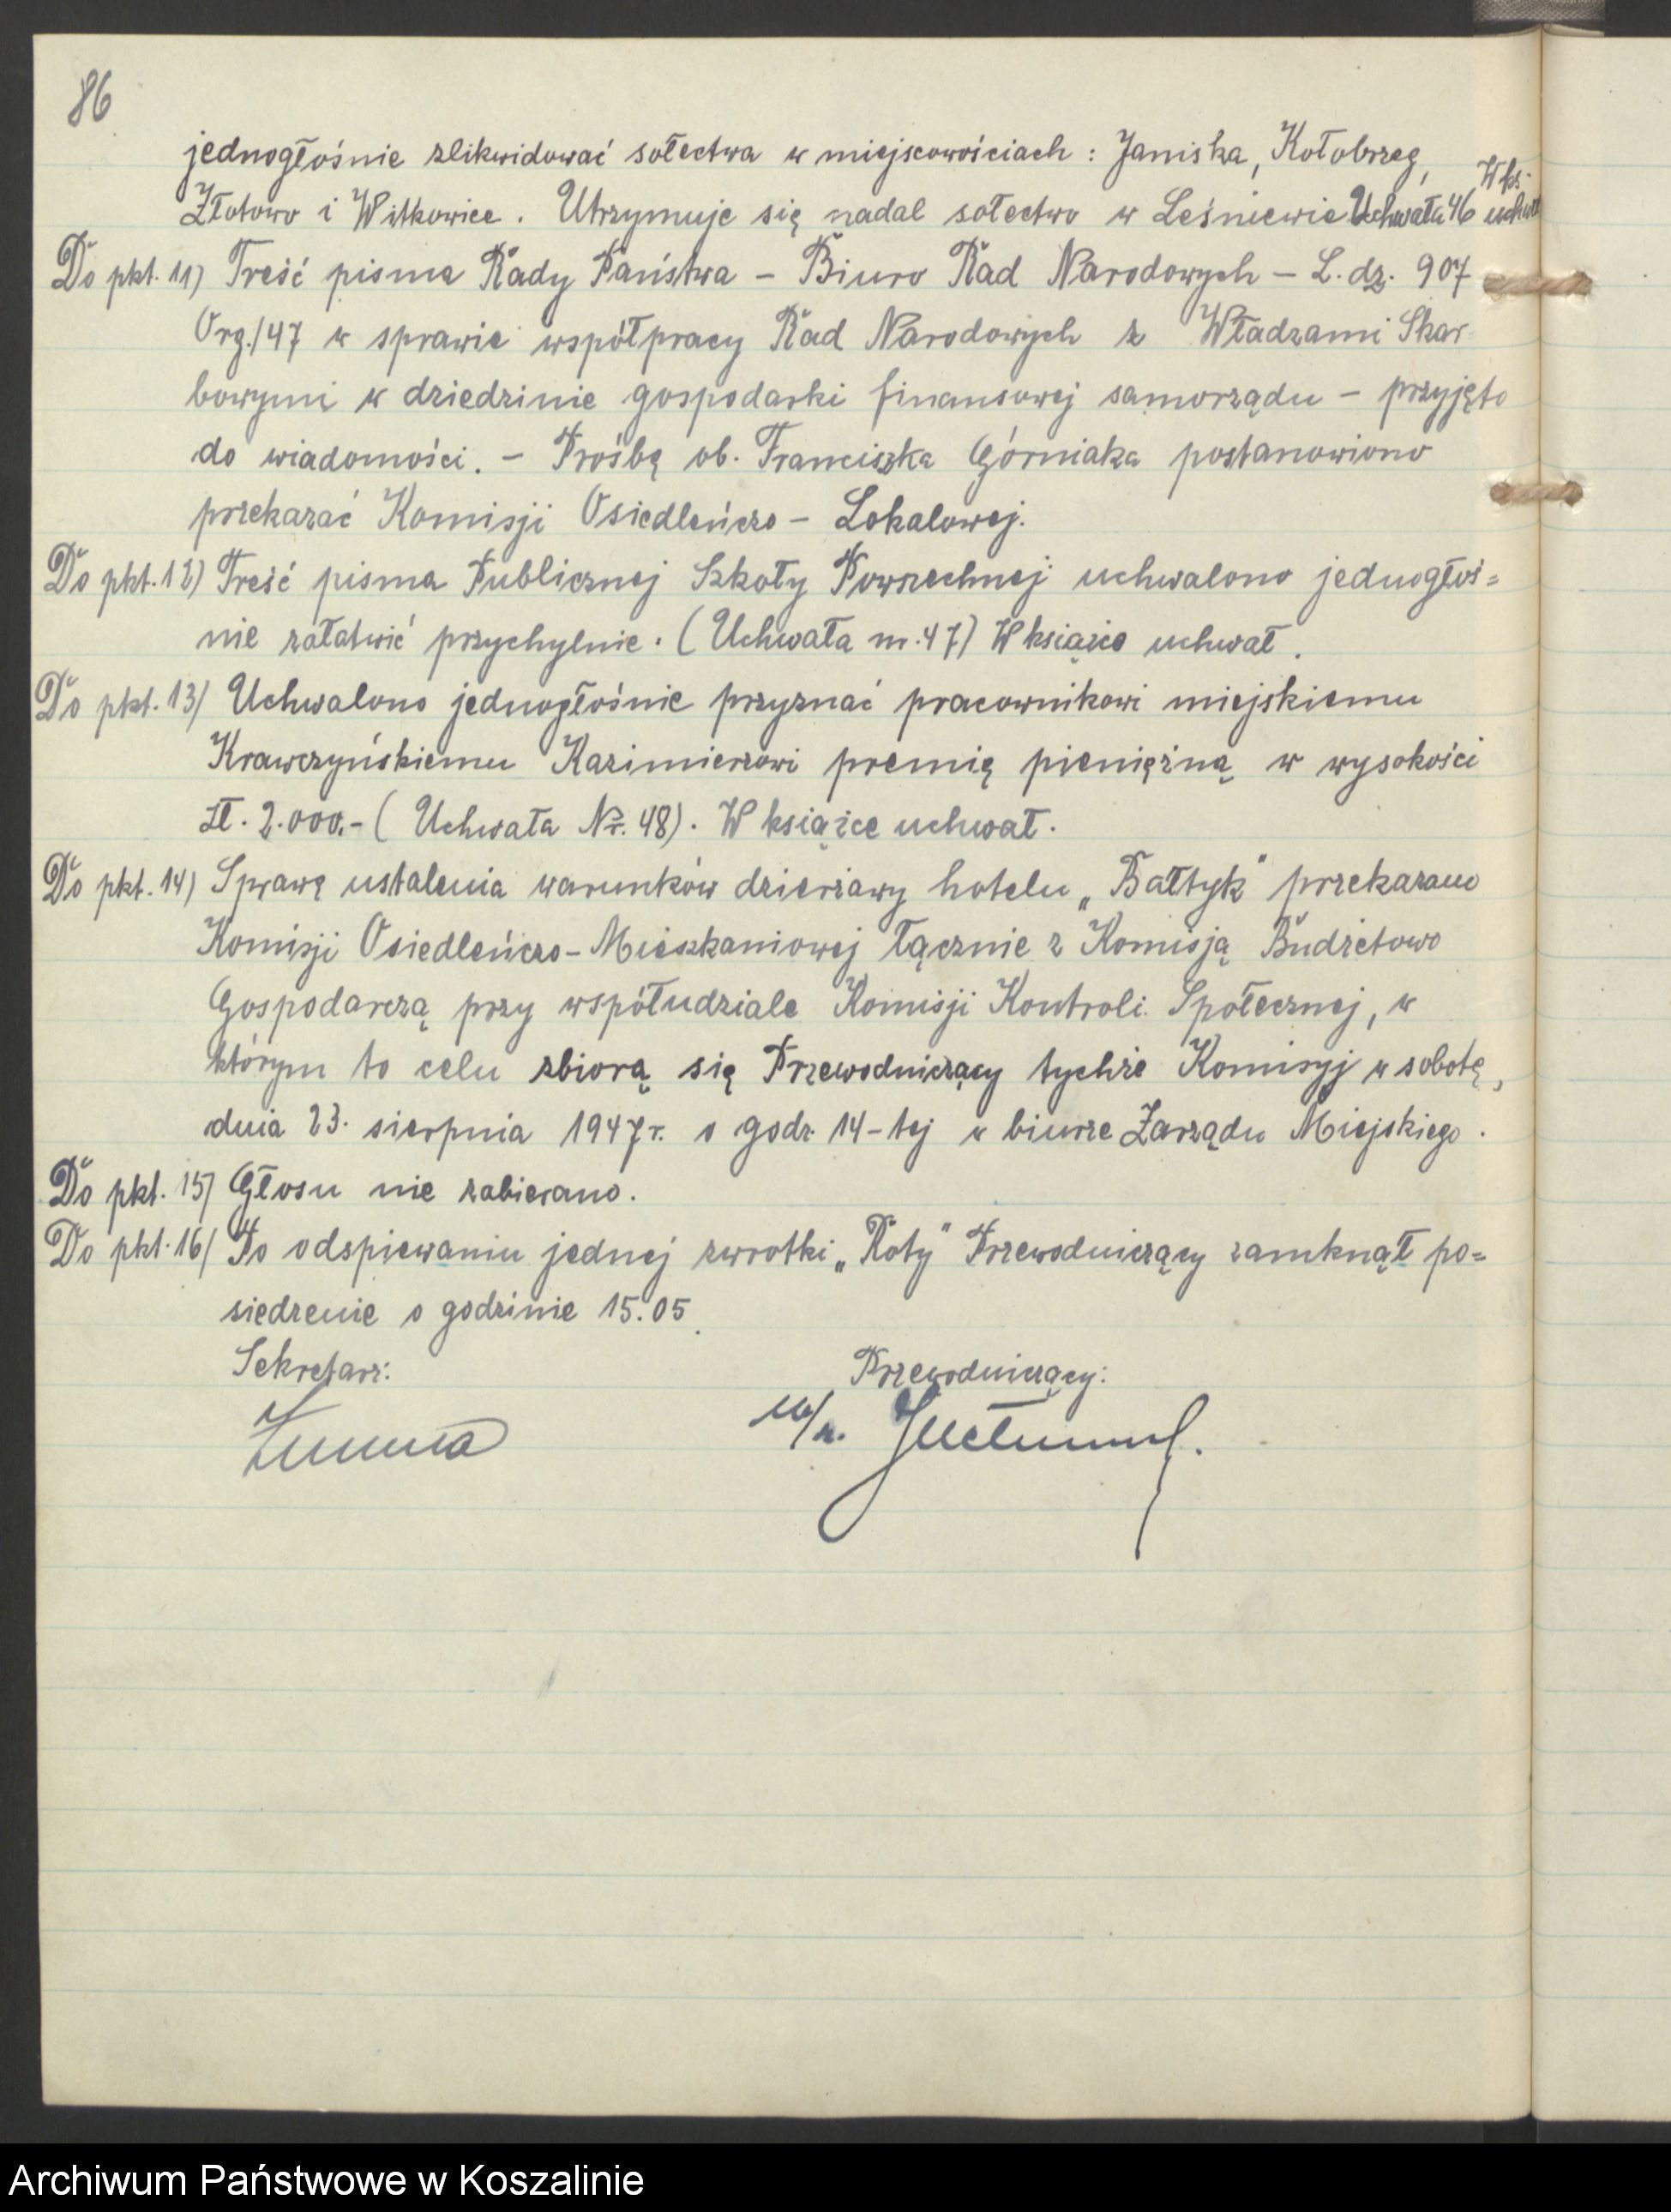 86
jednogłośnie zlikwidować sołectwa w miejscowościach : Janiska, Kołobrzeg,
Złotowo i Witkowice . Utrzymuje się nadal sołectwo w Leśniewie Uchwała 46 W ks. uchwał
Do pkt. 11) Treść pisma Rady Państwa – Biuro Rad Narodowych – L. dz. 907
Org./47 w sprawie współpracy Rad Narodowych z Władzami Skar-
bowymi w dziedzinie gospodarki finansowej samorządu – przyjęto
do wiadomości. – Prośbę ob. Franciszka Górniaka postanowiono
przekazać Komisji Osiedleńczo – Lokalowej.
Do pkt. 12) Treść pisma Publicznej Szkoły Powszechnej uchwalono jednogłoś=
nie załatwić przychylnie . ( Uchwała nr. 47) W książce uchwał .
Do pkt. 13/ Uchwalono jednogłośnie przyznać pracownikowi miejskiemu
Krawczyńskiemu Kazimierzowi premię pieniężną w wysokości
zł. 2.000.- ( Uchwała Nr. 48) . W książce uchwał .
Do pkt. 14) Sprawę ustalenia warunków dzierżawy hotelu „Bałtyk" przekazano
Komisji Osiedleńczo – Mieszkaniowej łącznie z Komisją Budżetowo
Gospodarczą przy współudziale Komisji Kontroli Społecznej, w
którym to celu zbiorą się Przewodniczący tychże Komisyj w sobotę,
dnia 23. sierpnia 1947 r. o godz. 14-tej w biurze Zarządu Miejskiego .
Do pkt. 15) Głosu nie zabierano .
Do pkt. 16/ Po odspiewaniu jednej zwrotki „Roty" Przewodniczący zamknął po=
siedzenie o godzinie 15.05.
Sekretarz: Przewodniczący:
Archiwum Państwowe w Koszalinie